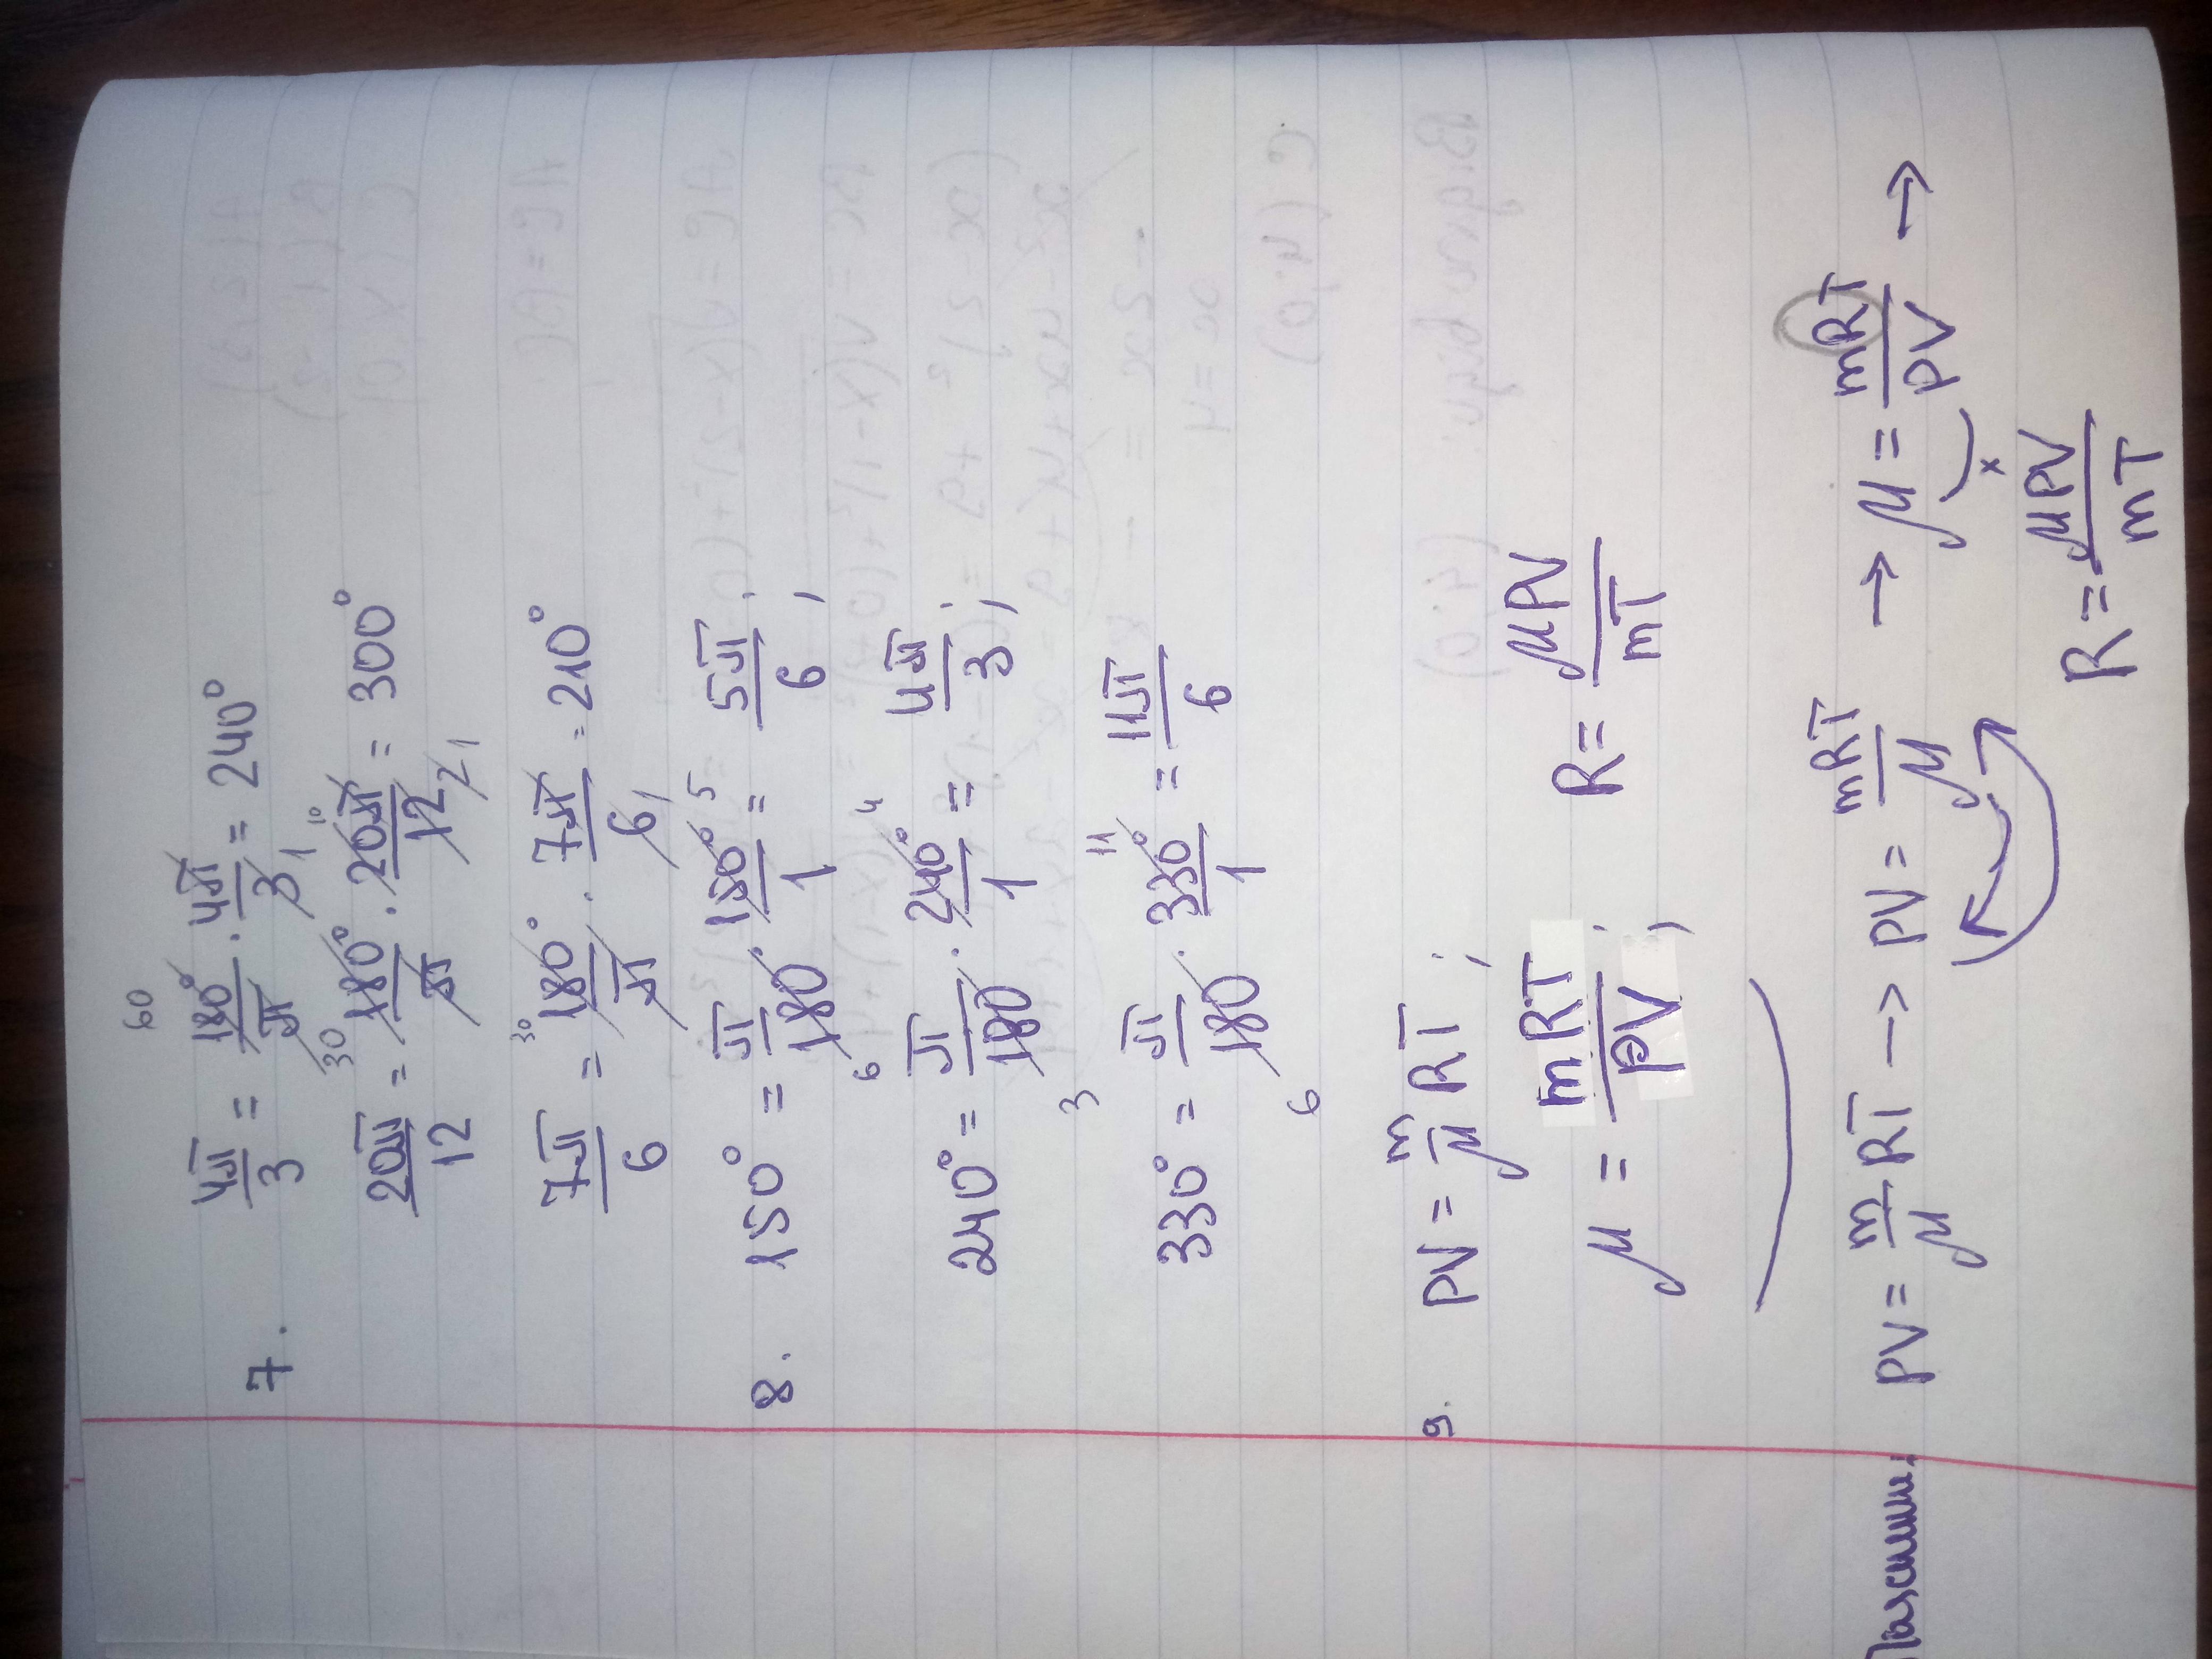 7. 4π/3 = 180°/π · 4π/3 = 240°
20π/12 = 180°/π · 20π/12 = 300°
7π/6 = 180°/π · 7π/6 = 210°
8. 150° = π/180 · 150°/1 = 5π/6 ;
240° = π/180 · 240°/1 = 4π/3 ;
330° = π/180 · 330°/1 = 11π/6
9. PV = m/μ RT ;
μ = mRT/PV ; R = μPV/mT
PV = m/μ RT → PV = mRT/μ → μ = mRT/PV →
R = μPV/mT